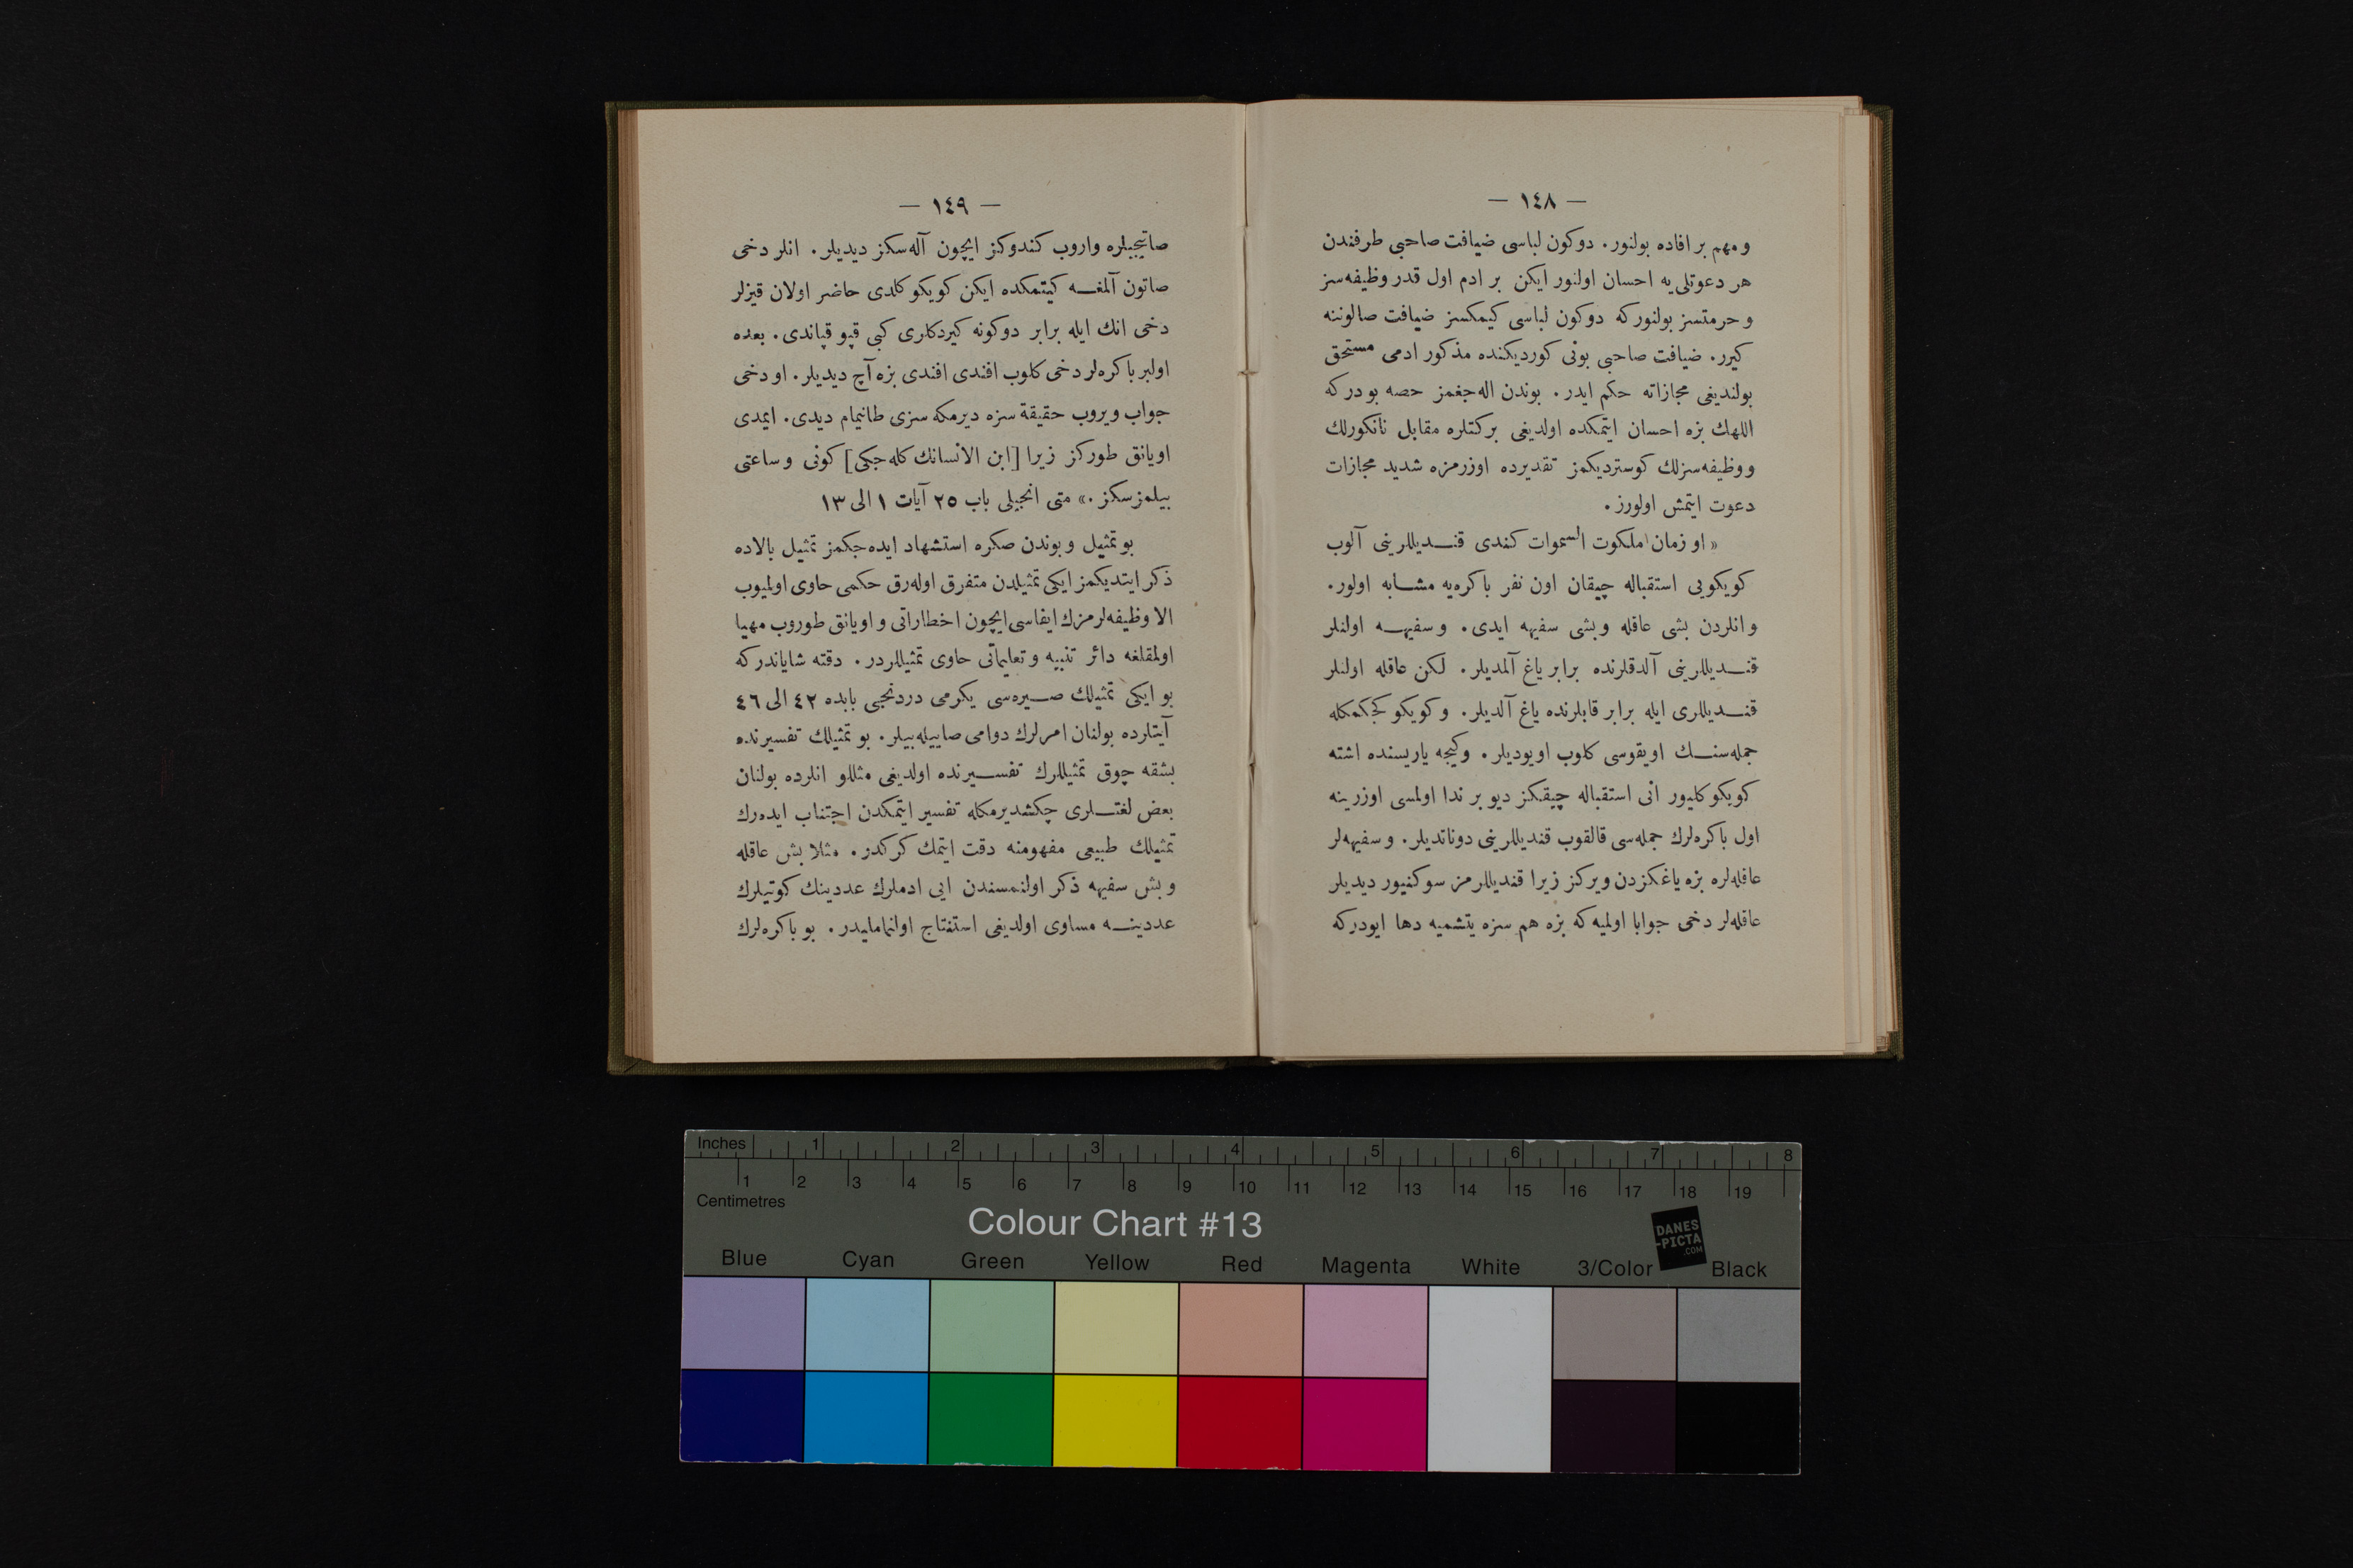 — ١٤٨ —
و مهم بر افاده بولنور. دوكون لباسی ضیافت صاحبی طرفندن
هر دعوتلی یه احسان اولنور ایكن بر ادم اول قدر وظیفه‌سز
و حرمتسز بولنوركه دوكون لباسی كیمكسز ضیافت صالوننه
كیرر. ضیافت صاحبی بونی كوردیكنده مذكور ادمی مستحق
بولندیغی مجازاته حكم ایدر. بوندن اله‌جغمز حصه بودركه
اللهك بزه احسان ایتمكده اولدیغی بركتلره مقابل نانكورلك
و وظیفه‌سزلك كوستردیكمز تقدیرده اوزرمزه شدید مجازات
دعوت ایتمش اولورز.
« او زمان ملكوت السموات كندی قنــدیللرینی آلوب
كویكویی استقباله چیقان اون نفر باكره‌یه مشــابه اولور.
و انلردن بشی عاقله و بشی سفیهه ایدی. و سفیهــه اولنلر
قنــدیللرینی آلدقلرنده برابر یاغ آلمدیلر. لكن عاقله اولنلر
قنــدیللری ایله برابر قابلرنده یاغ آلدیلر. و كویكو كجكمكله
جمله‌سنــك اویقوسی كلوب اویودیلر. و كیجه یاریسنده اشته
كویكو كلیور انی استقباله چیقكز دیو بر ندا اولمسی اوزرینه
اول باكره‌لرك جمله‌سی قالقوب قندیللرینی دوناتدیلر. و سفیهه‌لر
عاقله‌لره بزه یاغكزدن ویركز زیرا قندیللرمز سوكنیور دیدیلر
عاقله‌لر دخی جوابا اولمیه كه بزه هم سزه یتشمیه دها ایودركه
— ١٤٩ —
صاتیجیلره واروب كندوكز ایچون آله‌سكز دیدیلر. انلر دخی
صاتون آلمغــه كیتمكده ایكن كویكو كلدی حاضر اولان قیزلر
دخی انك ایله برابر دوكونه كیردكلری كبی قپو قپاندی. بعده
اولبر باكره‌لر دخی كلوب افندی افندی بزه آچ دیدیلر. او دخی
جواب ویروب حقیقة سزه دیرمكه سزی طانیمام دیدی. ایمدی
اویانق طوركز زیرا [ابن الانسانك كله‌جكی] كونی و ساعتی
بیلمزسكز.» متی انجیلی باب ٢٥ آیات ١ الی ١٣
بو تمثیل و بوندن صكره استشهاد ایده‌جكمز تمثیل بالاده
ذكر ایتدیكمز ایكی تمثیلدن متفرق اوله‌رق حكمی حاوی اولمیوب
الا وظیفه‌لرمزك ایفاسی ایچون اخطاراتی و اویانق طوروب مهیا
اولمقلغه دائر تنبیه و تعلیماتی حاوی تمثیللردر. دقته شایاندركه
بو ایكی تمثیلك صــیره‌سی یكرمی دردنجی بابده ٤٢ الی ٤٦
آیتلرده بولنان امرلرك دوامی صاییله‌بیلر. بو تمثیلك تفسیرنده
بشقه چوق تمثیللرك تفســیرنده اولدیغی مثللو انلرده بولنان
بعض لغتــلری چكشدیرمكله تفسیر ایتمكدن اجتناب ایده‌رك
تمثیلك طبیعی مفهومنه دقت ایتمك كركدر. مثلا بش عاقله
و بش سفیهه ذكر اولنمسندن ایی ادملرك عددینك كوتیلرك
عددینــه مساوی اولدیغی استنتاج اولنماملیدر. بو باكره‌لرك
Inches 1 2 3 4 5 6 7 8
1 2 3 4 5 6 7 8 9 10 11 12 13 14 15 16 17 18 19
Centimetres
Colour Chart #13
DANES
-PICTA
.COM
Blue Cyan Green Yellow Red Magenta White 3/Color Black